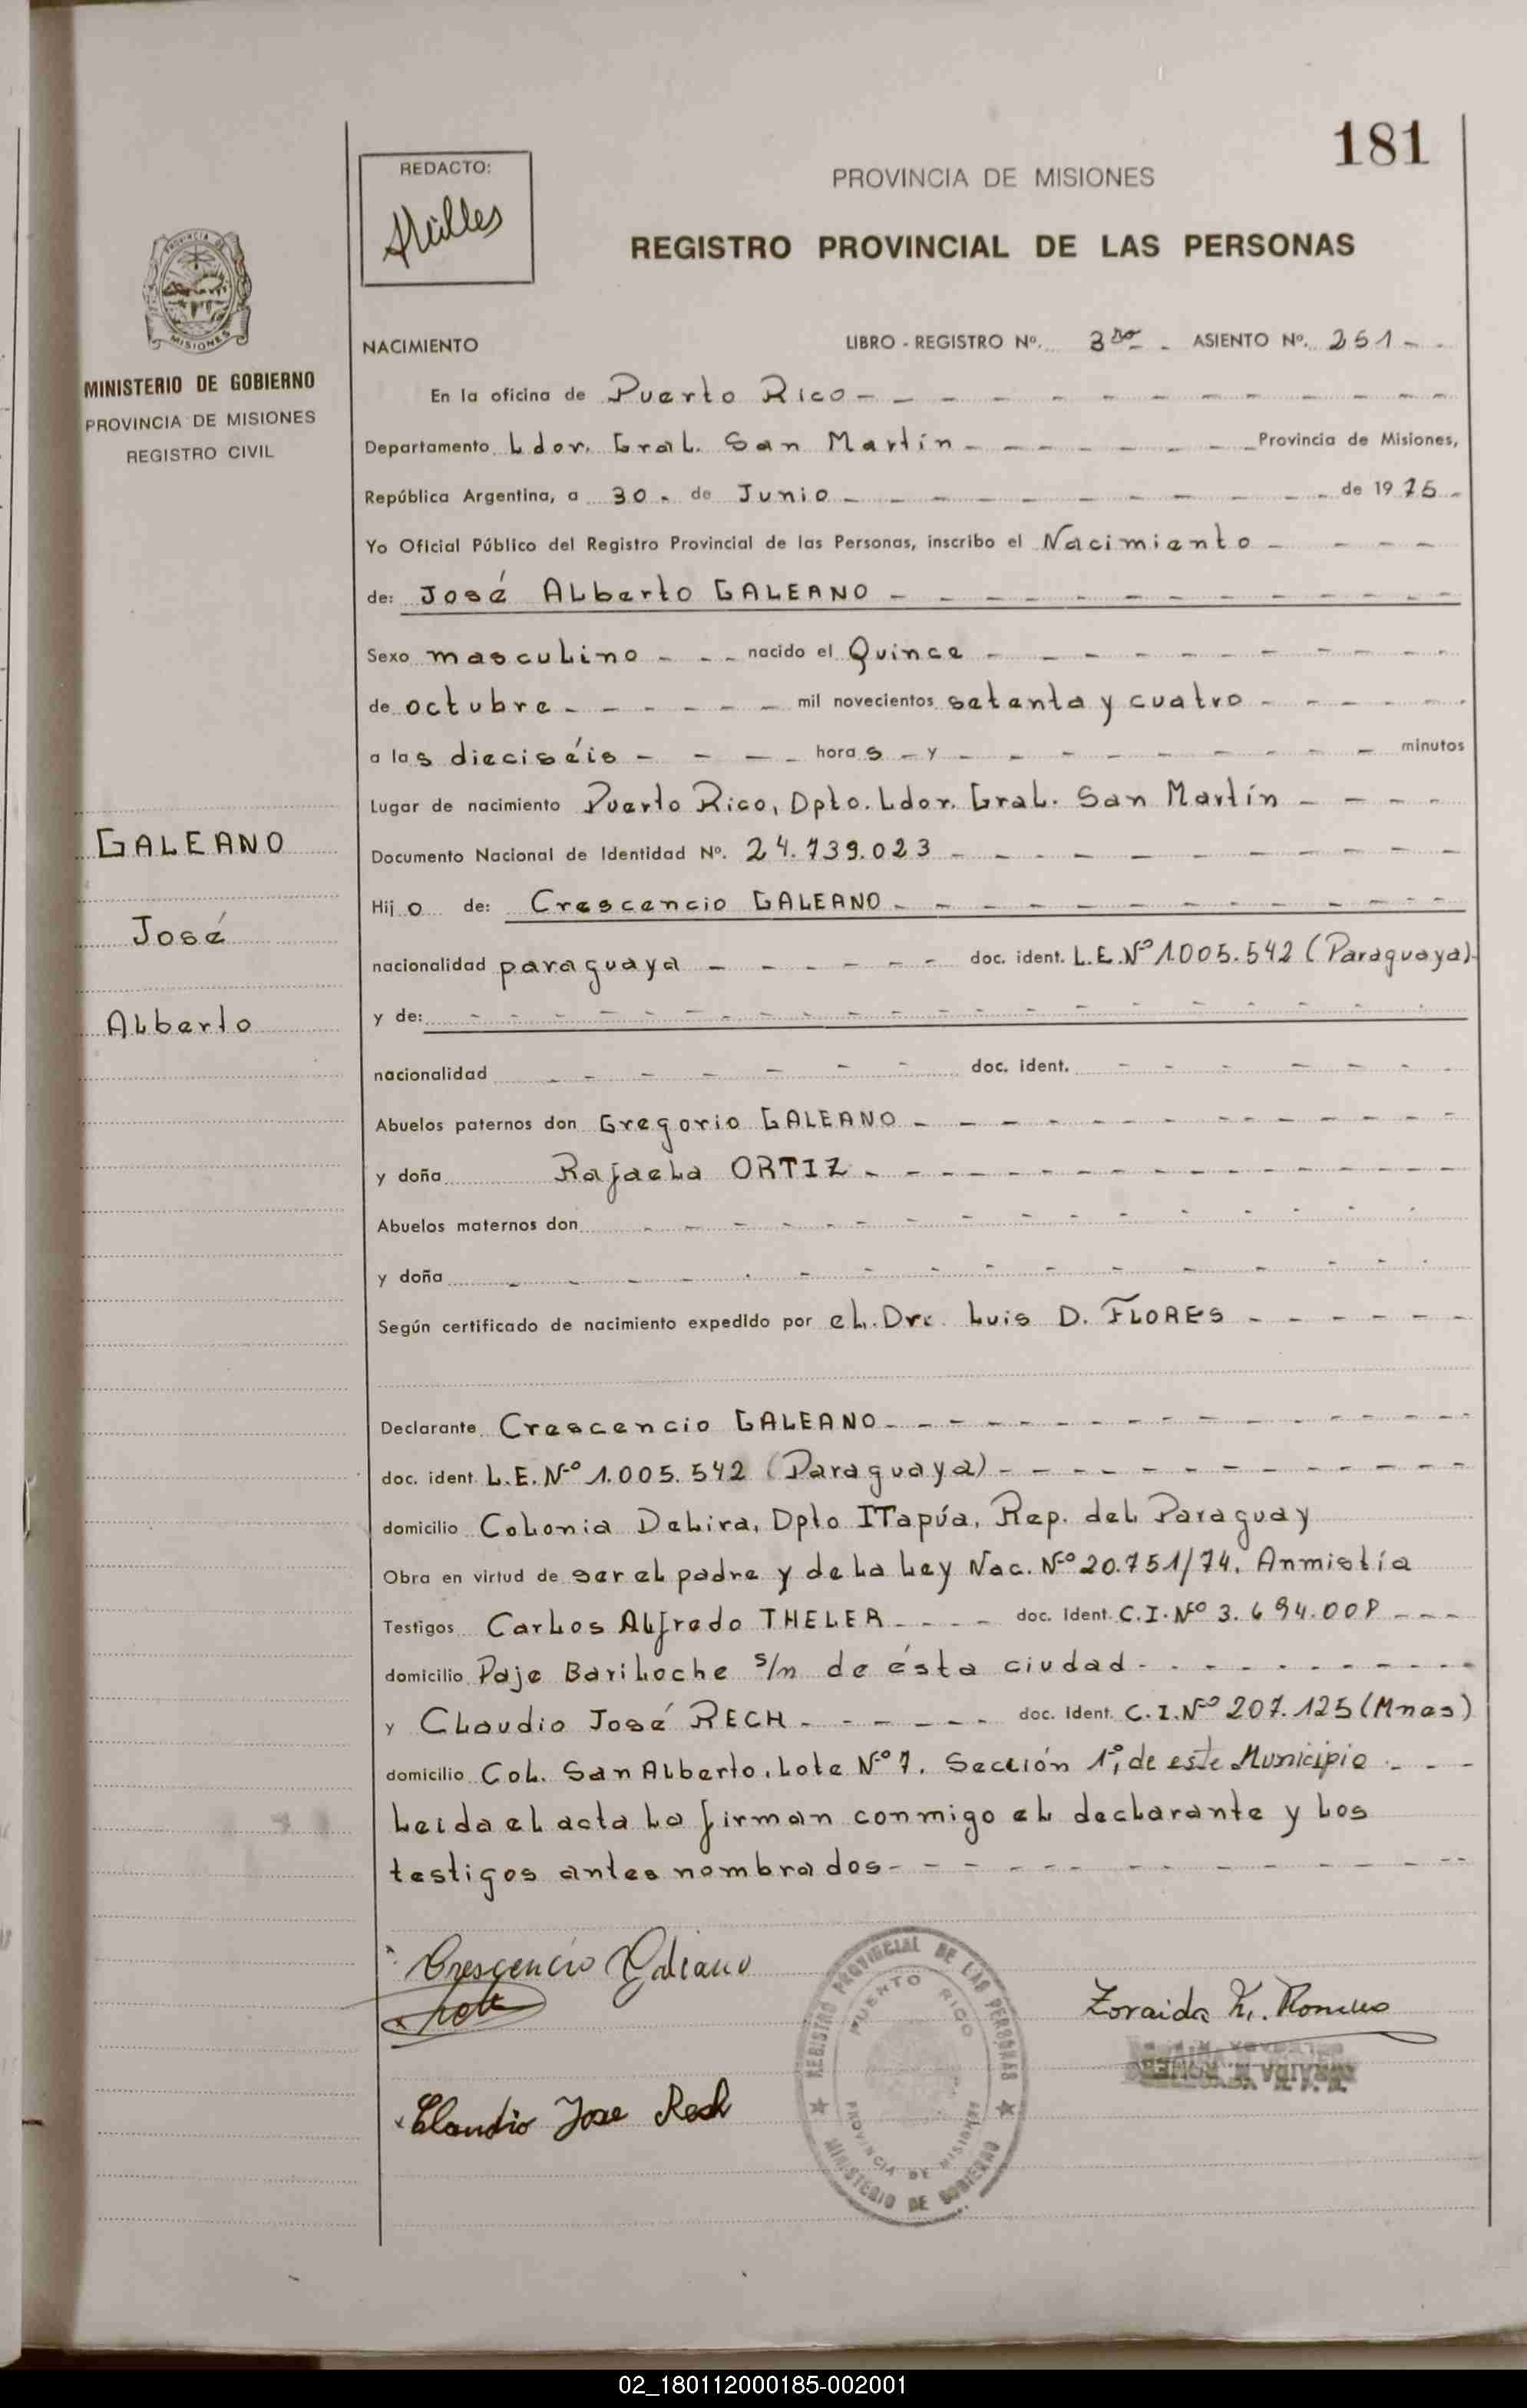 181
REDACTO:
PROVINCIA DE MISIONES
REGISTRO PROVINCIAL DE LAS PERSONAS
MISIONES
MINISTERIO DE GOBIERNO
PROVINCIA DE MISIONES
REGISTRO CIVIL
NACIMIENTO LIBRO - REGISTRO Nº. 3ro - ASIENTO Nº. 251 -
En la oficina de Puerto Rico -
Departamento Ldor. Gral. San Martín - Provincia de Misiones,
República Argentina, a 30 - de Junio - de 1975 -
Yo Oficial Público del Registro Provincial de las Personas, inscribo el Nacimiento -
de: José Alberto GALEANO -
Sexo masculino - nacido el Quince -
de octubre - mil novecientos setenta y cuatro -
a las dieciséis - horas - y - minutos
Lugar de nacimiento Puerto Rico, Dpto. Ldor. Gral. San Martín -
GALEANO
José
Alberto
Documento Nacional de Identidad Nº. 24.739.023 -
Hijo de: Crescencio GALEANO -
nacionalidad paraguaya - doc. ident. L.E.Nº 1.005.542 (Paraguaya)-
y de: -
nacionalidad - doc. ident. -
Abuelos paternos don Gregorio GALEANO -
y doña Rafaela ORTIZ -
Abuelos maternos don -
y doña -
Según certificado de nacimiento expedido por el Dr. Luis D. FLORES -
Declarante Crescencio GALEANO -
doc. ident. L.E. Nº 1.005.542 (Paraguaya) -
domicilio Colonia Delira, Dpto ITapúa, Rep. del Paraguay
Obra en virtud de ser el padre y de la Ley Nac. Nº 20.751/74. Anmistía
Testigos Carlos Alfredo THELER - doc. ident. C.I. Nº 3.694.008 -
domicilio Paje Bariloche s/n de ésta ciudad -
y Claudio José RECH - doc. ident. C.I.Nº 207.125 (Mnes)
domicilio Col. San Alberto, Lote Nº 7, Sección 1º, de este Municipio -
Leida el acta la firman conmigo el declarante y los
testigos antes nombrados -
Crescencio Galeano
Claudio Jose Rech
REGISTRO PROVINCIAL DE LAS PERSONAS
PUERTO RICO
PROVINCIA DE MISIONES
MINISTERIO DE GOBIERNO
Zoraida K. Romero
ZORAIDA K. ROMERO
02_180112000185-002001